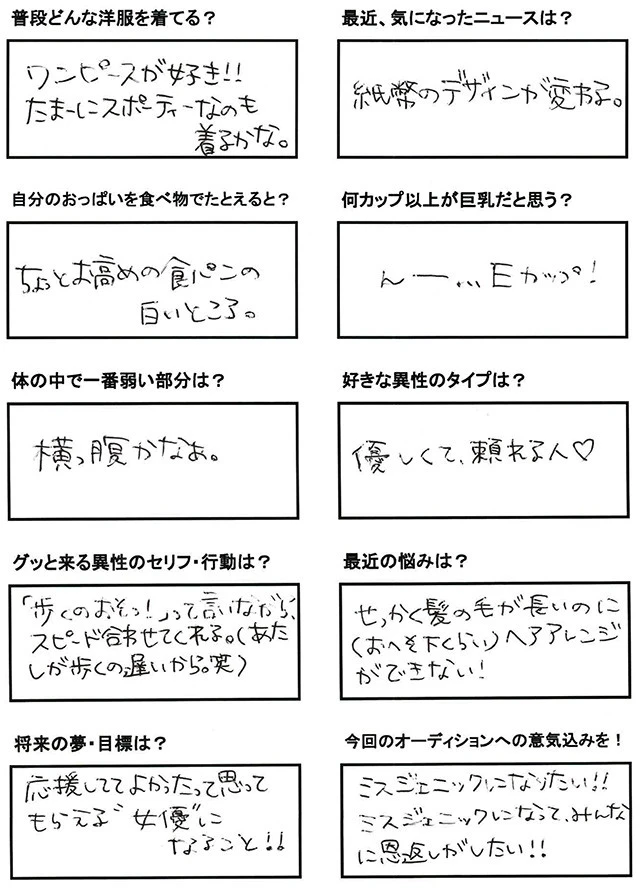 普段どんな洋服を着てる？
ワンピースが好き!!
たまーにスポーティーなのも
着るかな。
最近、気になったニュースは？
紙幣のデザインが変わる。
自分のおっぱいを食べ物でたとえると？
ちょっとお高めの食パンの
白いところ。
何カップ以上が巨乳だと思う？
んー... Eカップ!
体の中で一番弱い部分は？
横っ腹かなぁ。
好きな異性のタイプは？
優しくて、頼れる人♡
グッと来る異性のセリフ・行動は？
「歩くのおそっ!」って言いながら、
スピード合わせてくれる。(あた
しが歩くの遅いから。笑)
最近の悩みは？
せっかく髪の毛が長いのに
(おへそ下くらい)ヘアアレンジ
ができない!
将来の夢・目標は？
応援しててよかったって思って
もらえる"女優"に
なること!!
今回のオーディションへの意気込みを！
ミスジェニックになりたい!!
ミスジェニックになって、みんな
に恩返しがしたい!!